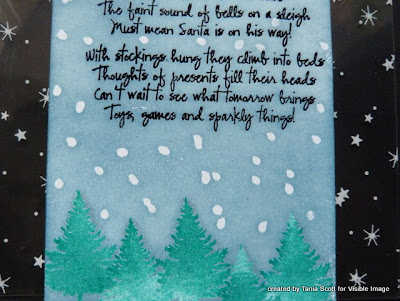 The faint sound of bells on a sleigh
Must mean Santa is on his way!
With stockings hung they climb into beds
Thoughts of presents fill their heads
Can't wait to see what tomorrow brings
Toys, games and sparkly things!
created by Tania Scott for Visible Image